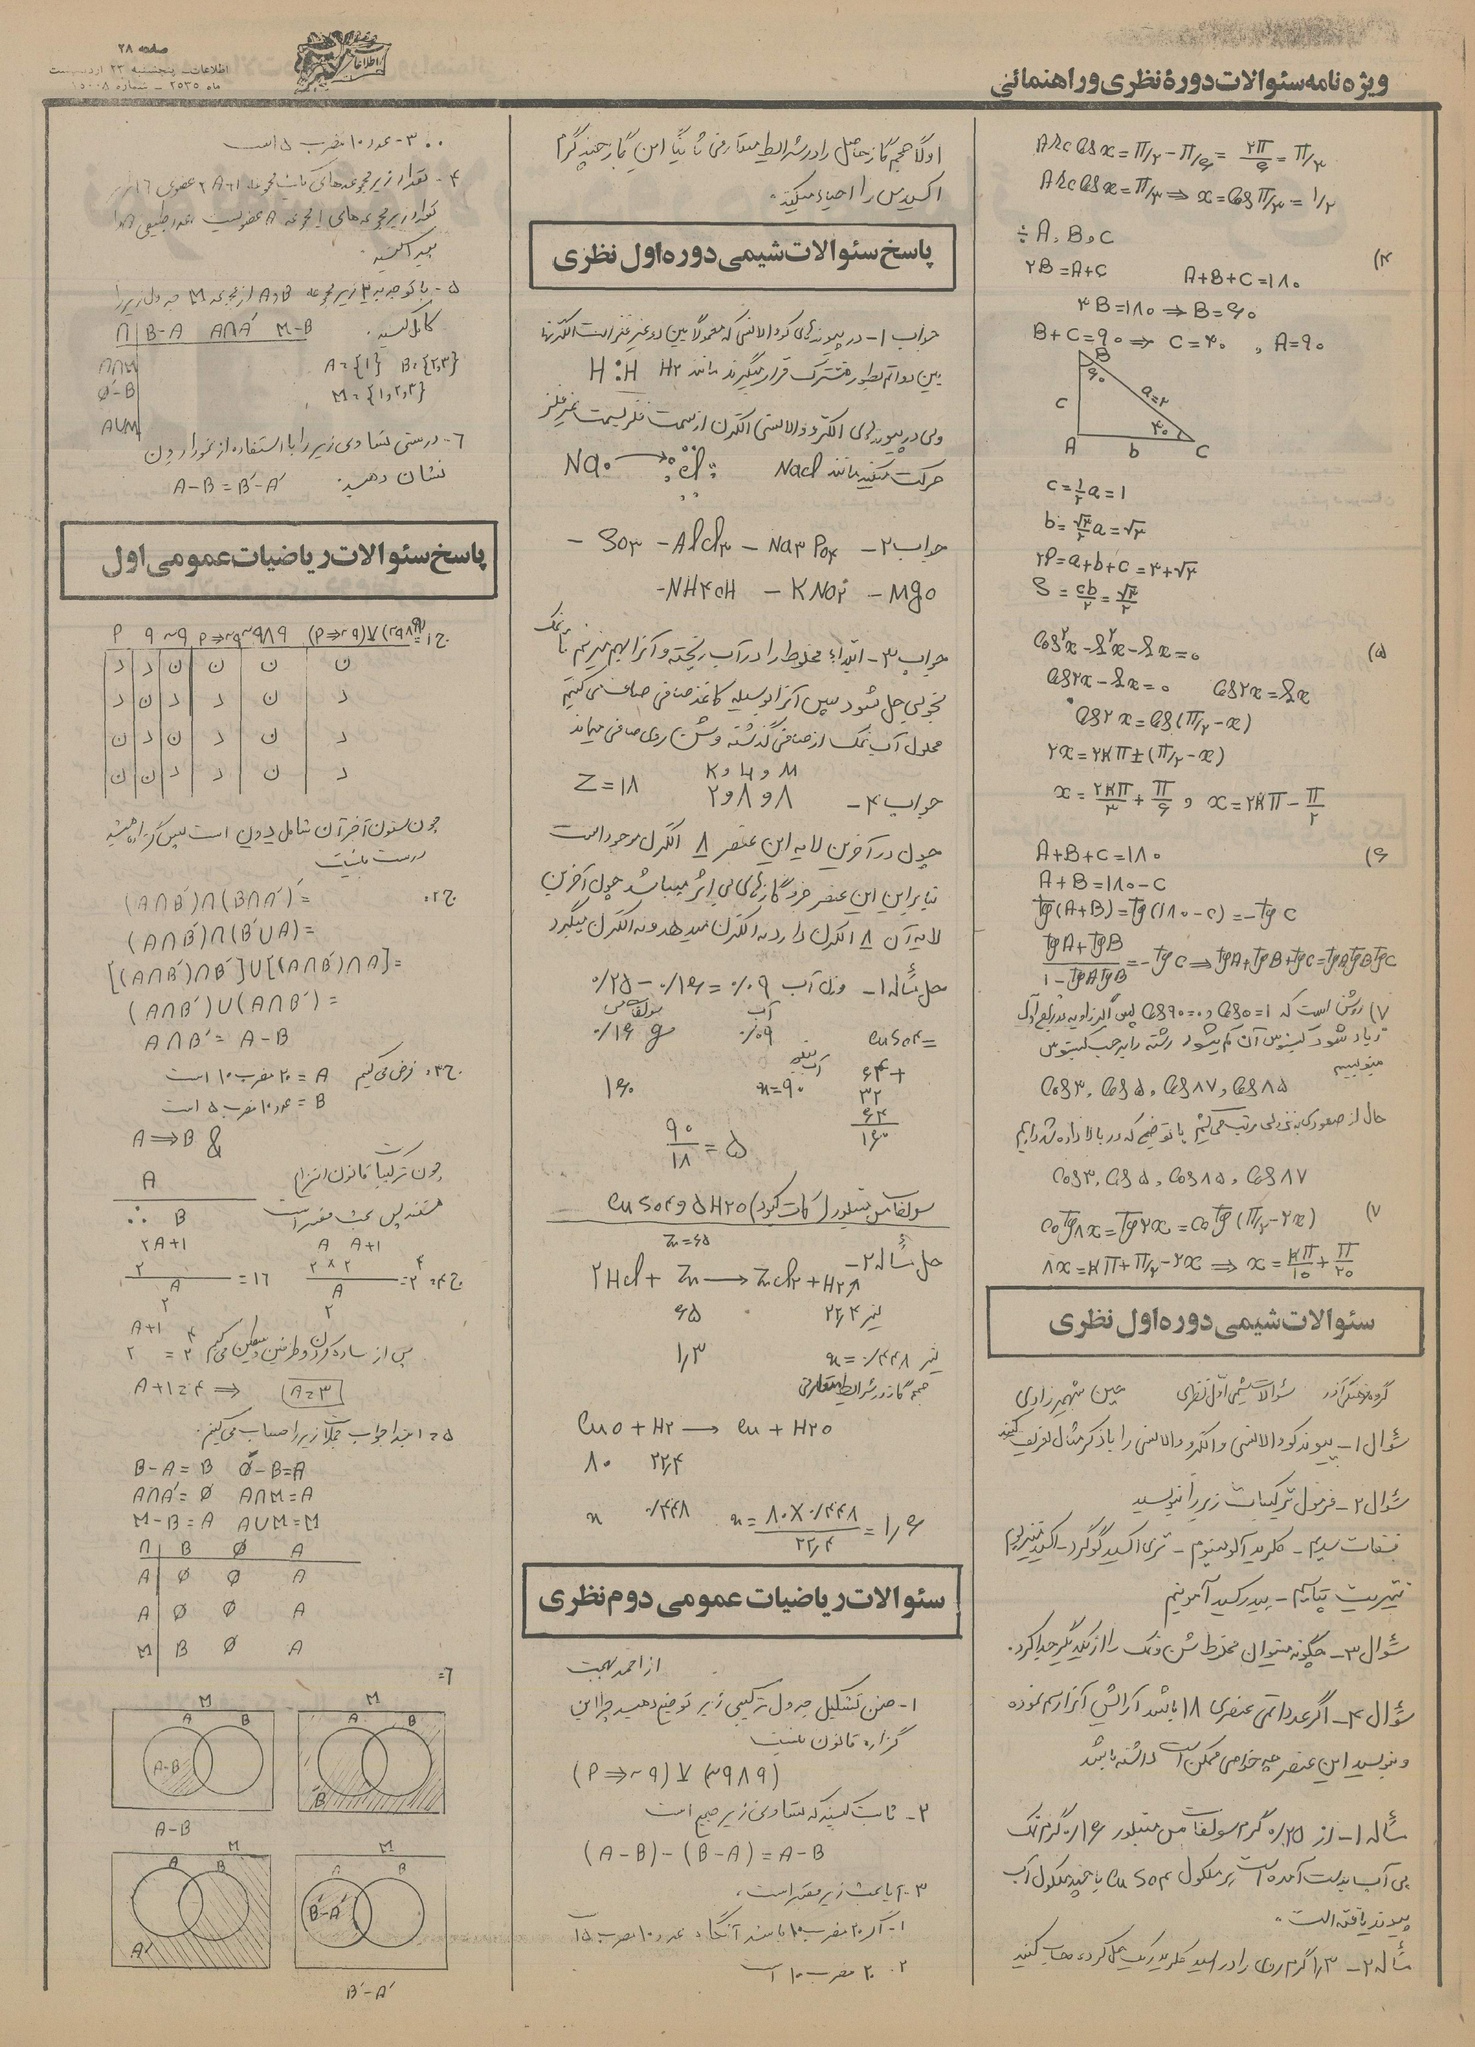 ویژه نامه سئوالات دورهٔ نظری وراهنمائی
صفحه ۲۸
اطلاعات ـ پنجشنبه ۲۳ اردیبهشت
ماه ۲۵۳۵ ـ شماره ۱۵۰۰۸
Arc Cos x = π/۲ − π/۶ = ۲π/۶ = π/۳
Arc Cos x = π/۳ ⇒ x = Cos π/۳ = ۱/۲
÷ A, B, C
۴)
۲B = A+C    A+B+C = ۱۸۰
۳B = ۱۸۰ ⇒ B = ۶۰
B+C = ۹۰ ⇒ C = ۳۰ , A = ۹۰
B
۶۰
a=۲
c
۳۰
A b C
c = ۱/۲ a = ۱
b = √۳/۲ a = √۳
۲P = a+b+c = ۳+√۳
S = cb/۲ = √۳/۲
۵)
Cos²x − S²x − Sx = ۰
Cos۲x − Sx = ۰    Cos۲x = Sx
Cos۲x = Cos(π/۲ − x)
۲x = ۲kπ ± (π/۲ − x)
x = ۲kπ/۳ + π/۶ , x = ۲kπ − π/۲
۶)
A+B+C = ۱۸۰
A+B = ۱۸۰−C
tg(A+B) = tg(۱۸۰−C) = −tgC
tgA+tgB / ۱−tgAtgB = −tgC ⇒ tgA+tgB+tgC = tgAtgBtgC
۷) روشن است که Cos۰=۱ و Cos۹۰=۰ پس اگر زاویه در ربع اول
زیاد شود کسینوس آن کم میشود رشته را برحسب کسینوس
مینویسیم
Cos۳, Cos۵, Cos۸۷, Cos۸۵
حال از صعودی به نزولی مرتب میکنیم با توضیحی که در بالا داده شد داریم
Cos۳, Cos۵, Cos۸۵, Cos۸۷
۷)
Cotg۸x = tg۲x = Cotg(π/۲−۲x)
۸x = kπ+π/۲−۲x ⇒ x = kπ/۱۰ + π/۲۰
سئوالات شیمی دوره اول نظری
گروه فرهنگی آذر سئوالات شیمی اول نظری
سئوال ۱ـ پیوند کووالانسی و الکترووالانسی را با ذکر مثال تعریف کنید
سئوال ۲ـ فرمول ترکیبات زیر را بنویسید
فسفات سدیم ـ کلرید آلومینیوم ـ تری اکسید گوگرد ـ اکسید منیزیوم
نیتریت پتاسیم ـ هیدرکسید آمونیم
سئوال ۳ـ چگونه میتوان مخلوط شن و نمک را از یکدیگر جدا کرد.
سئوال ۴ـ اگر عدد اتمی عنصری ۱۸ باشد آرایش آنرا رسم نموده
و بنویسید این عنصر چه خواصی ممکن است داشته باشد
مسأله ۱ـ از ۰/۲۵ گرم سولفات مس متبلور ۰/۱۶ گرم نمک
بی آب بدست آمده است هر ملکول CuSO۴ با چند ملکول آب
پیوند یافته است.
مسأله ۲ـ ۱٫۳ گرم روی را در اسید کلریدریک حل کرده حساب کنید
اولاً حجم گاز حاصل را در شرایط متعارفی ثانیاً این گاز چند گرم
اکسید مس را احیاء میکند.
پاسخ سئوالات شیمی دوره اول نظری
جواب ۱ـ در پیوندهای کووالانسی که معمولاً بین دو غیر فلز است الکترونها
بین دو اتم بطور مشترک قرار میگیرند مانند H۲ H:H
ولی در پیوندهای الکترووالانسی الکترن از سمت فلز بسمت غیر فلز
حرکت میکند مانند NaCl Na۰ → Cl
جواب ۲ـ Na۳PO۴ − AlCl۳ − SO۳ −
MgO − KNO۲ − NH۴OH−
جواب ۳ـ ابتداء مخلوط را در آب ریخته و آنرا بهم میزنیم تا نمک
بخوبی حل شود سپس آنرا بوسیله کاغذ صافی صاف می کنیم
محلول آب نمک از صافی گذشته و شن روی صافی میماند
K و L و M
جواب ۴ـ ۲ و ۸ و ۸    Z = ۱۸
چون در آخرین لایه این عنصر ۸ الکترن موجود است
بنابراین این عنصر جزو گازهای بی اثر میباشد چون آخرین
لایه آن ۸ الکترن دارد نه الکترن میدهد و نه الکترن میگیرد
حل مسأله ۱ـ وزن آب ۰/۰۹ = ۰/۱۶ − ۰/۲۵
آب سولفات مس
CuSO۴= ۰/۰۹ ۰/۱۶ g
۶۴+
۳۲
۶۴
۱۶۰
x=۹۰ ۱۶۰
۹۰/۱۸ = ۵
سولفات مس متبلور (کات کبود) CuSO۴ و ۵H۲O
Zn=۶۵
حل مسأله ۲ـ
۲HCl + Zn → ZnCl۲ + H۲↑
۶۵ ۲۲٫۴ لیتر
۱٫۳ x = ۰/۴۴۸ لیتر
حجم گاز در شرایط متعارفی
CuO + H۲ → Cu + H۲O
۸۰ ۲۲٫۴
x ۰/۴۴۸ x = ۸۰×۰/۴۴۸ / ۲۲٫۴ = ۱٫۶
سئوالات ریاضیات عمومی دوم نظری
از احمد بهجت
۱ـ ضمن تشکیل جدول ترکیبی زیر توضیح دهید چرا این
گزاره قانون نیست
(P ⇒ ~q) ∨ (~q ∧ q)
۲ـ ثابت کنید که تساوی زیر صحیح است
(A−B)−(B−A) = A−B
۳ـ آیا بحث زیر معتبر است.
۱ـ اگر ۲۰ مضرب ۱۰ باشد آنگاه عدد ۱۰ مضرب ۵ است
۲. ۲۰ مضرب ۱۰ است
۳ـ عدد ۱۰ مضرب ۵ است
۴ـ تعداد زیر مجموعه های یک مجموعه A+۱ عضوی ۱۶
پیدا کنید
۵ـ با توجه به ۲ زیر مجموعه A و B از مجموعه M جدول زیر را
کامل کنید.
∩ B−A A∩A′ M−B
A∩M A={۱} B={۲,۳}
∅′−B M={۱,۲,۳}
A∪M
۶ـ درستی تساوی زیر را با استفاده از نمودار ون
نشان دهید. A−B = B′−A′
پاسخ سئوالات ریاضیات عمومی اول
ج۱=
P q ~q P⇒~q ~q∧q (P⇒~q)∨(~q∧q)
د د ن ن ن ن
د ن د د ن د
ن د ن د ن د
ن ن د د ن د
چون ستون آخر آن شامل د و ن است پس گزاره همیشه
درست نیست
ج۲:
(A∩B′)∩(B∩A′)′=
(A∩B′)∩(B′∪A)=
[(A∩B′)∩B′]∪[(A∩B′)∩A]=
(A∩B′)∪(A∩B′)=
A∩B′ = A−B
ج۳: فرض می کنیم A = ۲۰ مضرب ۱۰ است
B = عدد ۱۰ مضرب ۵ است
A ⇒ B &
A
∴ B
هستند پس بحث معتبر است
ج۴:
پس از ساده کردن و طرفین وسطین می کنیم
A+۱=۴ ⇒ A=۳
۵ = ابتدا جواب جملات زیر را حساب می کنیم.
B−A = B    ∅′−B = A
A∩A′ = ∅    A∩M = A
M−B = A    A∪M = M
∩ B ∅ A
A ∅ ∅ A
A ∅ ∅ A
M B ∅ A
۶=
M A B A−B
M A B B′
A−B
M A B A′
M A B B′−A′
B′−A′